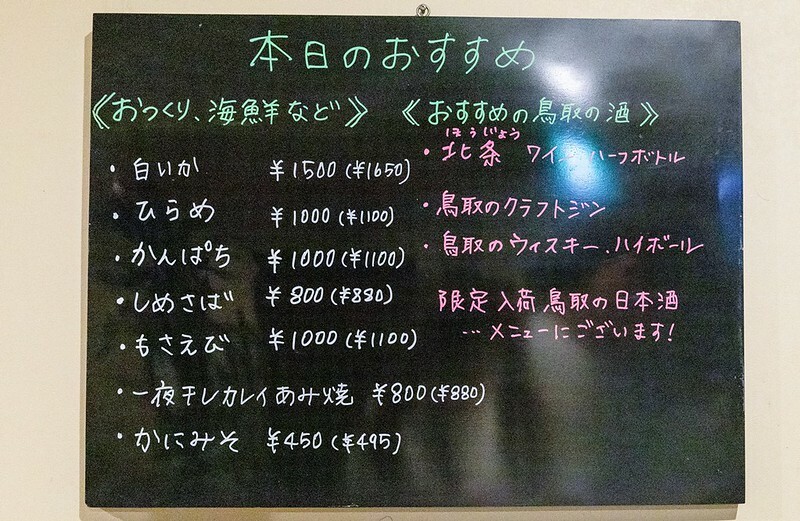 本日のおすすめ
《おつくり、海鮮など》
・白いか ¥1500(¥1650)
・ひらめ ¥1000(¥1100)
・かんぱち ¥1000(¥1100)
・しめさば ¥800(¥880)
・もさえび ¥1000(¥1100)
・一夜干しカレイあみ焼 ¥800(¥880)
・かにみそ ¥450(¥495)
《おすすめの鳥取の酒》
ほうじょう
・北条 ワイン ハーフボトル
・鳥取のクラフトジン
・鳥取のウィスキー、ハイボール
限定入荷鳥取の日本酒
…メニューにございます!